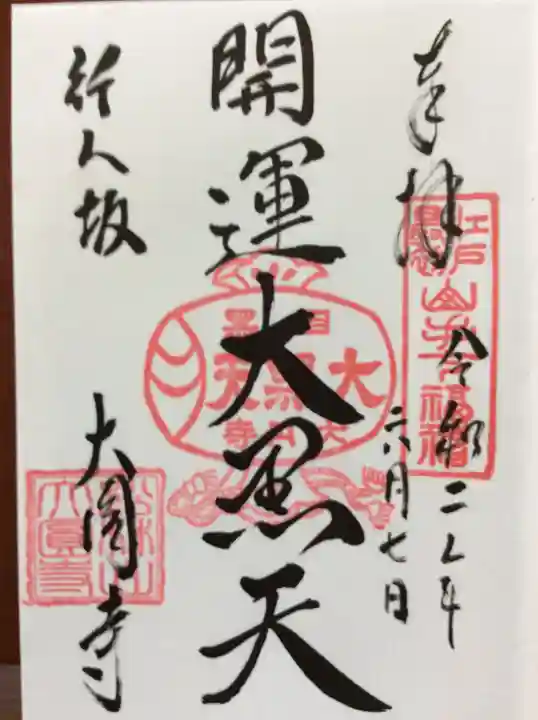 奉拝
令和二年
六月七日
開運大黒天
行人坂
大圓寺
江戸
山手七福神
目黒
大黒天
大圓寺